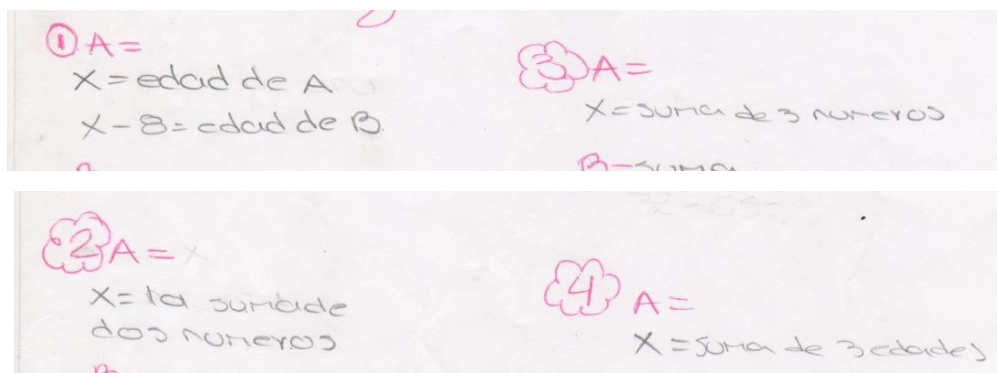 ① A=
X=edad de A
X-8=edad de B.
③ A=
X=suma de 3 numeros
B-suma
② A=
X=la suma de
dos numeros
④ A=
X=suma de 3 edades